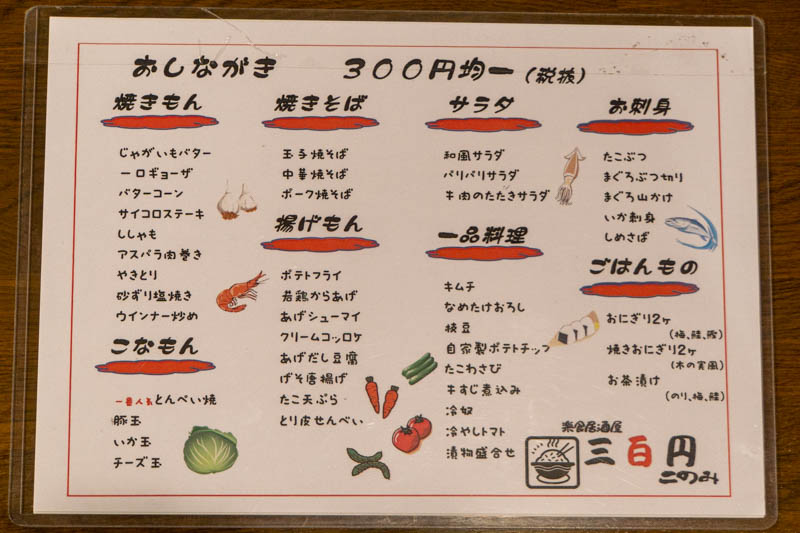 おしながき　３００円均一（税抜）
焼きもん
じゃがいもバター
一口ギョーザ
バターコーン
サイコロステーキ
ししゃも
アスパラ肉巻き
やきとり
砂ずり塩焼き
ウインナー炒め
こなもん
一番人気とんぺい焼
豚玉
いか玉
チーズ玉
焼きそば
玉子焼そば
中華焼そば
ポーク焼そば
揚げもん
ポテトフライ
若鶏からあげ
あげシューマイ
クリームコッロケ
あげだし豆腐
げそ唐揚げ
たこ天ぷら
とり皮せんべい
サラダ
和風サラダ
パリパリサラダ
牛肉のたたきサラダ
一品料理
キムチ
なめたけおろし
枝豆
自家製ポテトチップ
たこわさび
牛すじ煮込み
冷奴
冷やしトマト
漬物盛合せ
お刺身
たこぶつ
まぐろぶつ切り
まぐろ山かけ
いか刺身
しめさば
ごはんもの
おにぎり2ヶ
（梅、鮭、鰹）
焼きおにぎり2ヶ
（木の実風）
お茶漬け
（のり、梅、鮭）
楽食居酒屋
三百円
このみ